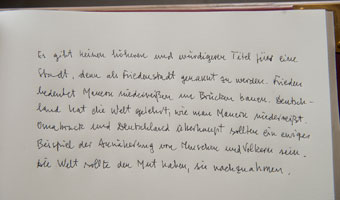 Es gibt keinen höheren und würdigeren Titel für eine
Stadt, denn als Friedenstadt genannt zu werden. Frieden
bedeutet Mauern niederreißen um Brücken bauen. Deutsch-
land hat die Welt gelehrt, wie man Mauern niederreißt.
Osnabrück und Deutschland überhaupt sollten ein ewiger
Beispiel der Annäherung von Menschen und Völkern sein.
Die Welt sollte den Mut haben, sie nachzuahmen.